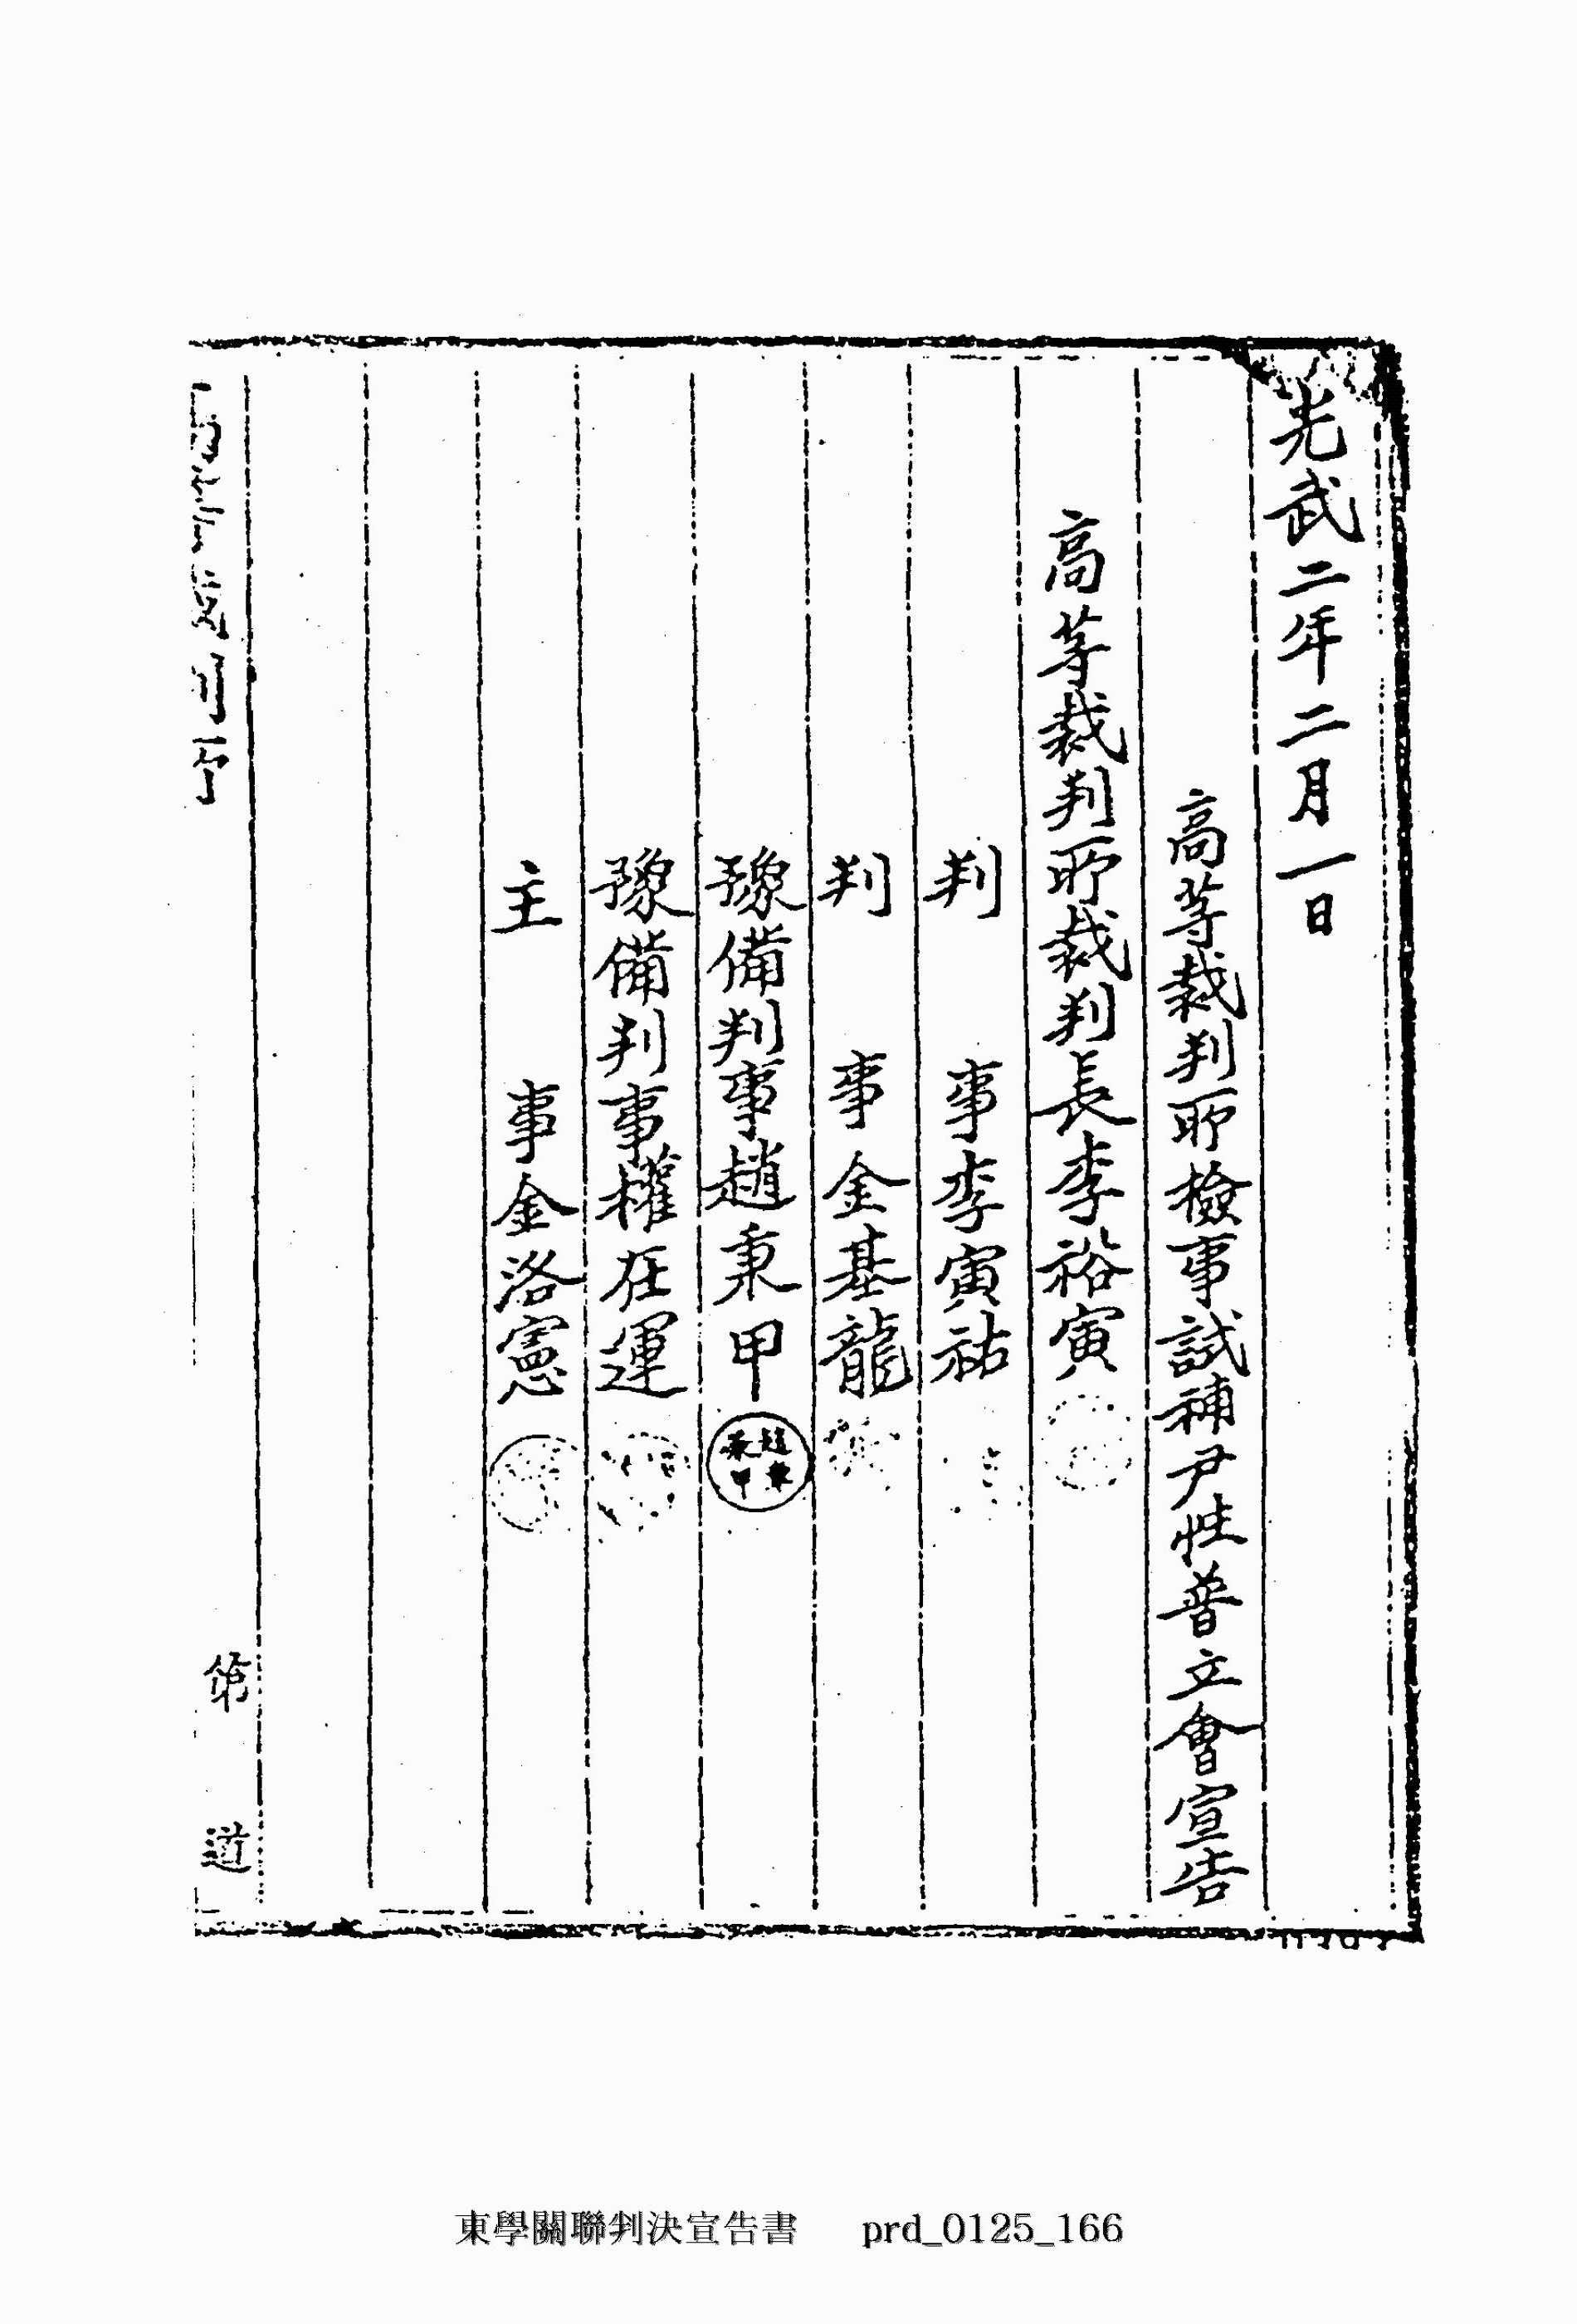 光武二年二月一日
高等裁判所檢事試補尹性普立會宣告
高等裁判所裁判長李裕寅
判 事李寅祐
判 事金基龍
豫備判事趙秉甲
豫備判事權在運
主 事金洛憲
第 道
東學關聯判決宣告書 prd_0125_166